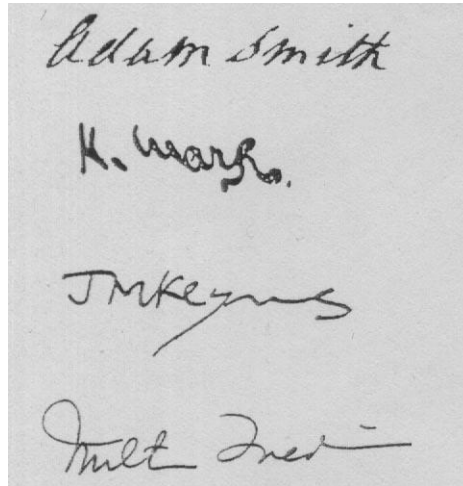 Adam Smith
K. Marx.
JMKeynes
Milton Friedman